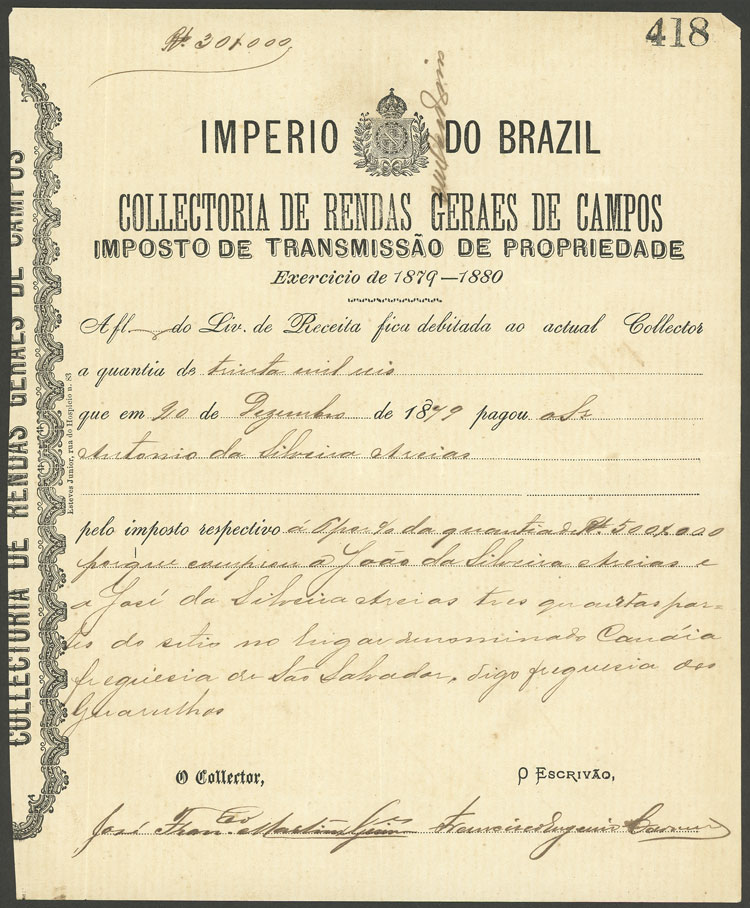 418
Rs. 30$000
IMPERIO DO BRAZIL
COLLECTORIA DE RENDAS GERAES DE CAMPOS
IMPOSTO DE TRANSMISSÃO DE PROPRIEDADE
Exercicio de 1879—1880
A fl. do Liv. de Receita fica debitada ao actual Collector
a quantia de trinta mil reis
que em 20 de Dezembro de 1879 pagou o Sr
Antonio da Silveira Areias
pelo imposto respectivo á 6 por % da quantia de Rs. 500$000
porque comprou a João da Silveira Areias e
a José da Silveira Areias tres quartas par-
tes do sitio no lugar denominado
freguesia de São Salvador, digo freguesia dos
Guarulhos
O Collector,
O ESCRIVÃO,
José Fran.co Martins
Francisco Eugenio
COLLECTORIA DE RENDAS GERAES DE CAMPOS
Esteves Junior, rua do Hospicio n. 83